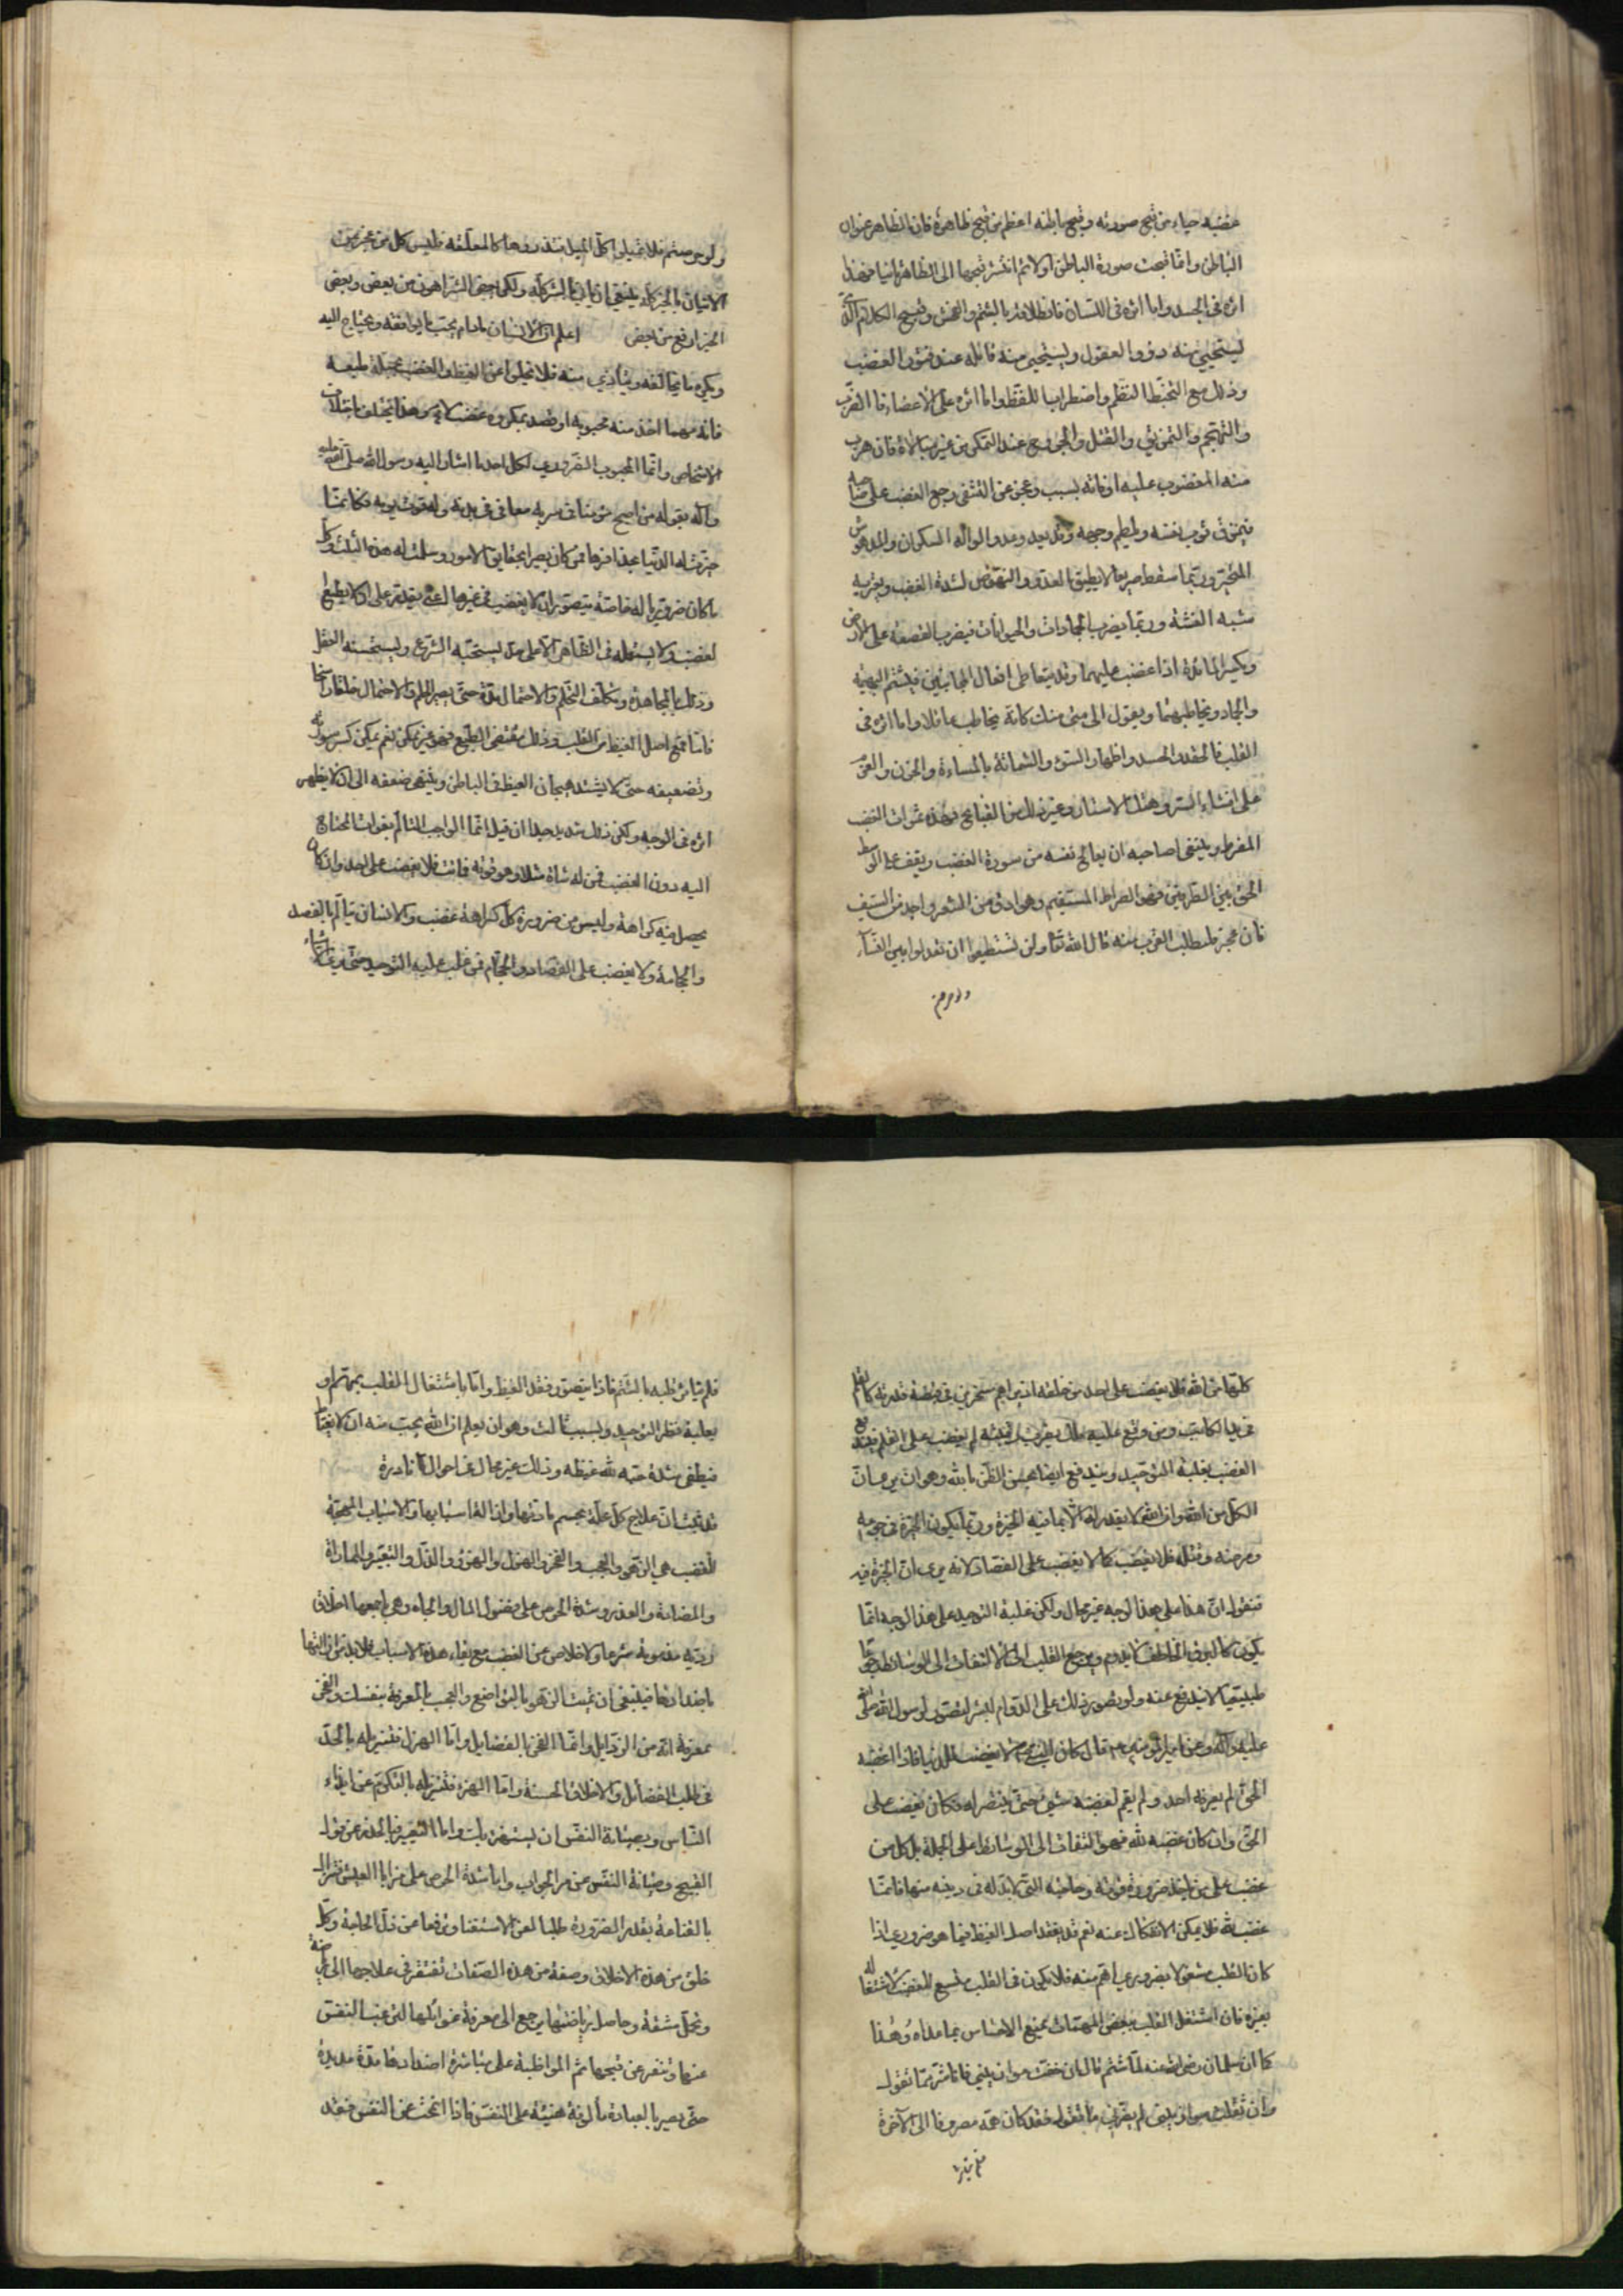 غضبه حياء من قبح صورته وقبح باطنه اعظم من قبح ظاهره فان الظاهر عنوان
الباطن وانما قبحت صورة الباطن اولا ثم انتشر قبحها الى الظاهر ثانيا فهذا
اثره في الجسد واما اثره في اللسان فانطلاقه بالشتم والفحش وقبيح الكلام الذي
يستحيي منه ذووا العقول ويستحيي منه قائله عند فتور الغضب
وذلك مع التخبط النظم واضطراب اللفظ واما اثره على الاعضاء فالضرب
والتهجم والتمزيق والقتل والجروح عند التمكن من غير مبالاة فان هرب
منه المغضوب عليه او فاته بسبب وعجز عن التشفي رجع الغضب على صاحبه
فيمزق ثوب نفسه ويلطم وجهه وقد يعد وعدو الواله السكران والمدهوش
المتحير وربما سقط صريعا لا يطيق العدو والنهوض لشدة الغضب ويعتريه
شبه الغشية وربما يضرب الجمادات والحيوانات فيضرب القصعة على الارض
ويكسر المائدة اذا غضب عليهما وقد يتعاطى افعال المجانين فيشتم البهيمة
والجماد ويخاطبهما ويقول الى متى منك كانه يخاطب عاقلا واما اثره في
القلب فالحقد والحسد واظهار السوء والشماتة بالمساءة والحزن والعزم
على افشاء السر وهتك الاستار وغير ذلك من القبايح فهذه ثمرات الغضب
المفرط وينبغي لصاحبه ان يعالج نفسه من سورة الغضب ويقف على الوسط
الحق بين الطرفين فهو الصراط المستقيم وهو ادق من الشعر واحد من السيف
فان عجز فليطلب القرب منه قال الله تعا ولن تستطيعوا ان تعدلوا بين النساء
ولو حرصتم
ولو حرصتم فلا تميلوا كل الميل فتذروها كالمعلقة فليس كل من عجز عن
الاتيان بالخير كله ينبغي ان ياتي بالشر كله ولكن بعض الشر اهون من بعض وبعض
الخير ارفع من بعض اعلم ان الانسان مادام يحب ما يوافقه ويحتاج اليه
ويكره ما يخالفه ويتأذى منه فلا يخلو عن الغيظ والغضب بجبلة طبيعته
فانه مهما اخذ منه محبوبه او قصد بمكروه غضب لا محالة وهذا يختلف باختلاف
الاشخاص وانما المحبوب الضروري لكل احد ما اشار اليه رسول الله صلى الله عليه
وآله بقوله من اصبح آمنا في سربه معافى في بدنه وله قوت يومه فكانما
حيزت له الدنيا بحذافيرها فمن كان بصيرا بحقايق الامور وسلمت له هذه الثلث وكل
ما كان ضروريا له خاصة يتصور ان لا يغضب في غيرها اعني يقدر على ان لا يطيع
الغضب ولا يستعمله في الظاهر الا على حد يستحبه الشرع ويستحسنه العقل
وذلك بالمجاهدة وتكلف التحلم والاحتمال مدة حتى يصير الحلم والاحتمال خلقا راسخا
فاما قمع اصل الغيظ من القلب وذلك مقتضى الطبع فهو غير ممكن نعم يمكن كسر سورته
وتضعيفه حتى لا يشتد هيجان الغيظ في الباطن وينتهي ضعفه الى ان لا يظهر
اثره في الوجه ولكن ذلك شديد جدا ان قيل انما الواجب التألم بفوات المحتاج
اليه دون الغضب فمن له شاة مثلا وهو قوته فماتت فلا يغضب على احد وان كان
يحصل فيه كراهة وليس من ضرورة كل كراهة غضب والانسان يتألم بالفصد
والحجامة ولا يغضب على الفصاد والحجام فمن غلب عليه التوحيد حتى يرى الاشياء
كلها من الله فلا يغضب على احد من خلقه اذ يراهم مسخرين في قبضة قدرته كالقلم
في يد الكاتب ومن وقع عليه ملك بضرب رقبته لم يغضب على القلم فيندفع
الغضب بغلبة التوحيد ويندفع ايضا بحسن الظن بالله وهو ان يرى ان
الكل من الله وان الله لا يقدر له الا ما فيه الخيرة وربما يكون الخيرة في جوعه
ومرضه وقتله فلا يغضب كما لا يغضب على الفصاد لانه يرى ان الخيرة فيه
فنقول ان هذا على هذا الوجه غير محال ولكن غلبة التوحيد على هذا الوجه انما
يكون كالبرق الخاطف لا يدوم ويرجع القلب الى الالتفات الى الوسائط رجوعا
طبيعيا لا يندفع عنه ولو تصور ذلك على الدوام لبشر لتصور لرسول الله صلى الله
عليه وآله وعن امير المؤمنين ع قال كان النبي ص لا يغضب للدنيا فاذا اغضبه
الحق لم يعرفه احد ولم يقم لغضبه شيء حتى ينتصر له فكان يغضب على
الحق وان كان غضبه لله فهو التفات الى الوسائط على الجملة بل كل من
غضب على من ياخذ ضرورة قوته وحاجته التي لا بد له في دينه منها فانما
غضب لله فلا يمكن الانفكاك عنه نعم قد يفقد اصل الغيظ فيما هو ضروري اذا
كان القلب مشغولا بضروري اهم منه فلا يكون في القلب متسع للغضب لاشتغاله
بغيره فان اشتغل القلب ببعض المهمات يمنع الاحساس بما عداه وهذا
كما ان سلمان رضي الله عنه لما شتم قال ان خفت موازيني فانا شر مما تقول
وان ثقلت موازيني لم يضرني ما تقول فقد كان همه مصروفا الى الآخرة
فلم يتأثر
فلم يتأثر قلبه بالشتم فاذا يتصور فقد الغيظ واما باشتغال القلب بمهم او
بغلبة نظر التوحيد وبسبب ثالث وهو ان يعلم ان الله يحب منه ان لا يغتاظ
فيطفى شدة حبه لله غيظه وذلك غير محال في احوال نادرة
قد عرفت ان علاج كل علة بحسم مادتها واذالة اسبابها والاسباب المهيجة
للغضب هي الزهو والعجب والفخر والهزل والهزؤ والذل والتعيير والمماراة
والمضادة والغدر وشدة الحرص على فضول المال والجاه وهي باجمعها اخلاق
ردية مذمومة شرعا ولا خلاص من الغضب مع بقاء هذه الاسباب فلا بد من ازالتها
باضدادها فينبغي ان تميت الزهو بالتواضع والعجب بالمعرفة بنفسك والفخر
بمعرفة انه من الرذايل وانما الفخر بالفضايل واما الهزل فتزيله بالجد
في طلب الفضائل والاخلاق الحسنة واما الهزء فتزيله بالتكرم عن ايذاء
الناس وبصيانة النفس ان يستهزء بك واما التعيير فبالحذر عن قول
القبيح وصيانة النفس عن مر الجواب واما شدة الحرص على مزايا العيش فتزال
بالقناعة بقدر الضرورة طلبا لعز الاستغناء وترفعا عن ذل الحاجة وكل
خلق من هذه الاخلاق وصفة من هذه الصفات تفتقر في علاجها الى رياضة
وتحمل مشقة وحاصل رياضتها يرجع الى معرفة غوائلها لترغب النفس
عنها وتنفر عن قبحها ثم المواظبة على مباشرة اضدادها مدة مديدة
حتى يصير بالعادة مألوفة هينة على النفس فاذا انمحت عن النفس فقد